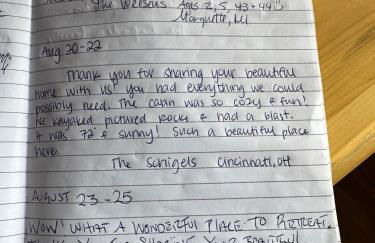 The Weesens Ages 2, 5, 43 + 44
Marquette, MI
Aug 20-22
Thank you for sharing your beautiful
home with us! You had everything we could
possibly need. The cabin was so cozy & fun!
We kayaked pictured rocks & had a blast.
It was 72° & sunny! Such a beautiful place
here.
The Schigels Cincinnati, OH
AUGUST 23-25
WOW! WHAT A WONDERFUL PLACE TO RETREAT.
BEAUTIFUL